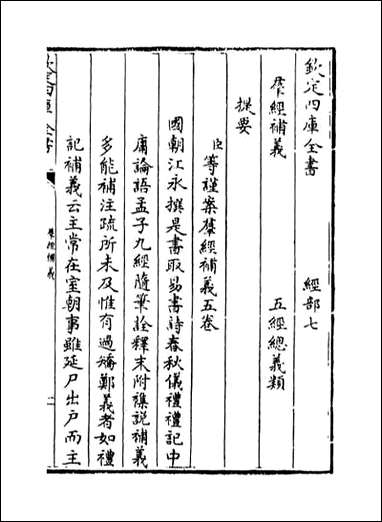 欽定四庫全書　　　經部七
羣經補義　　　五經總義類
提要
臣等謹案羣經補義五卷
國朝江永撰是書取易書詩春秋儀禮禮記中
庸論語孟子九經隨筆詮釋末附襍說補義
多能補注疏所未及惟有過矯鄭義者如禮
記補義云主常在室朝事雖延尸出戶而主
羣經補義